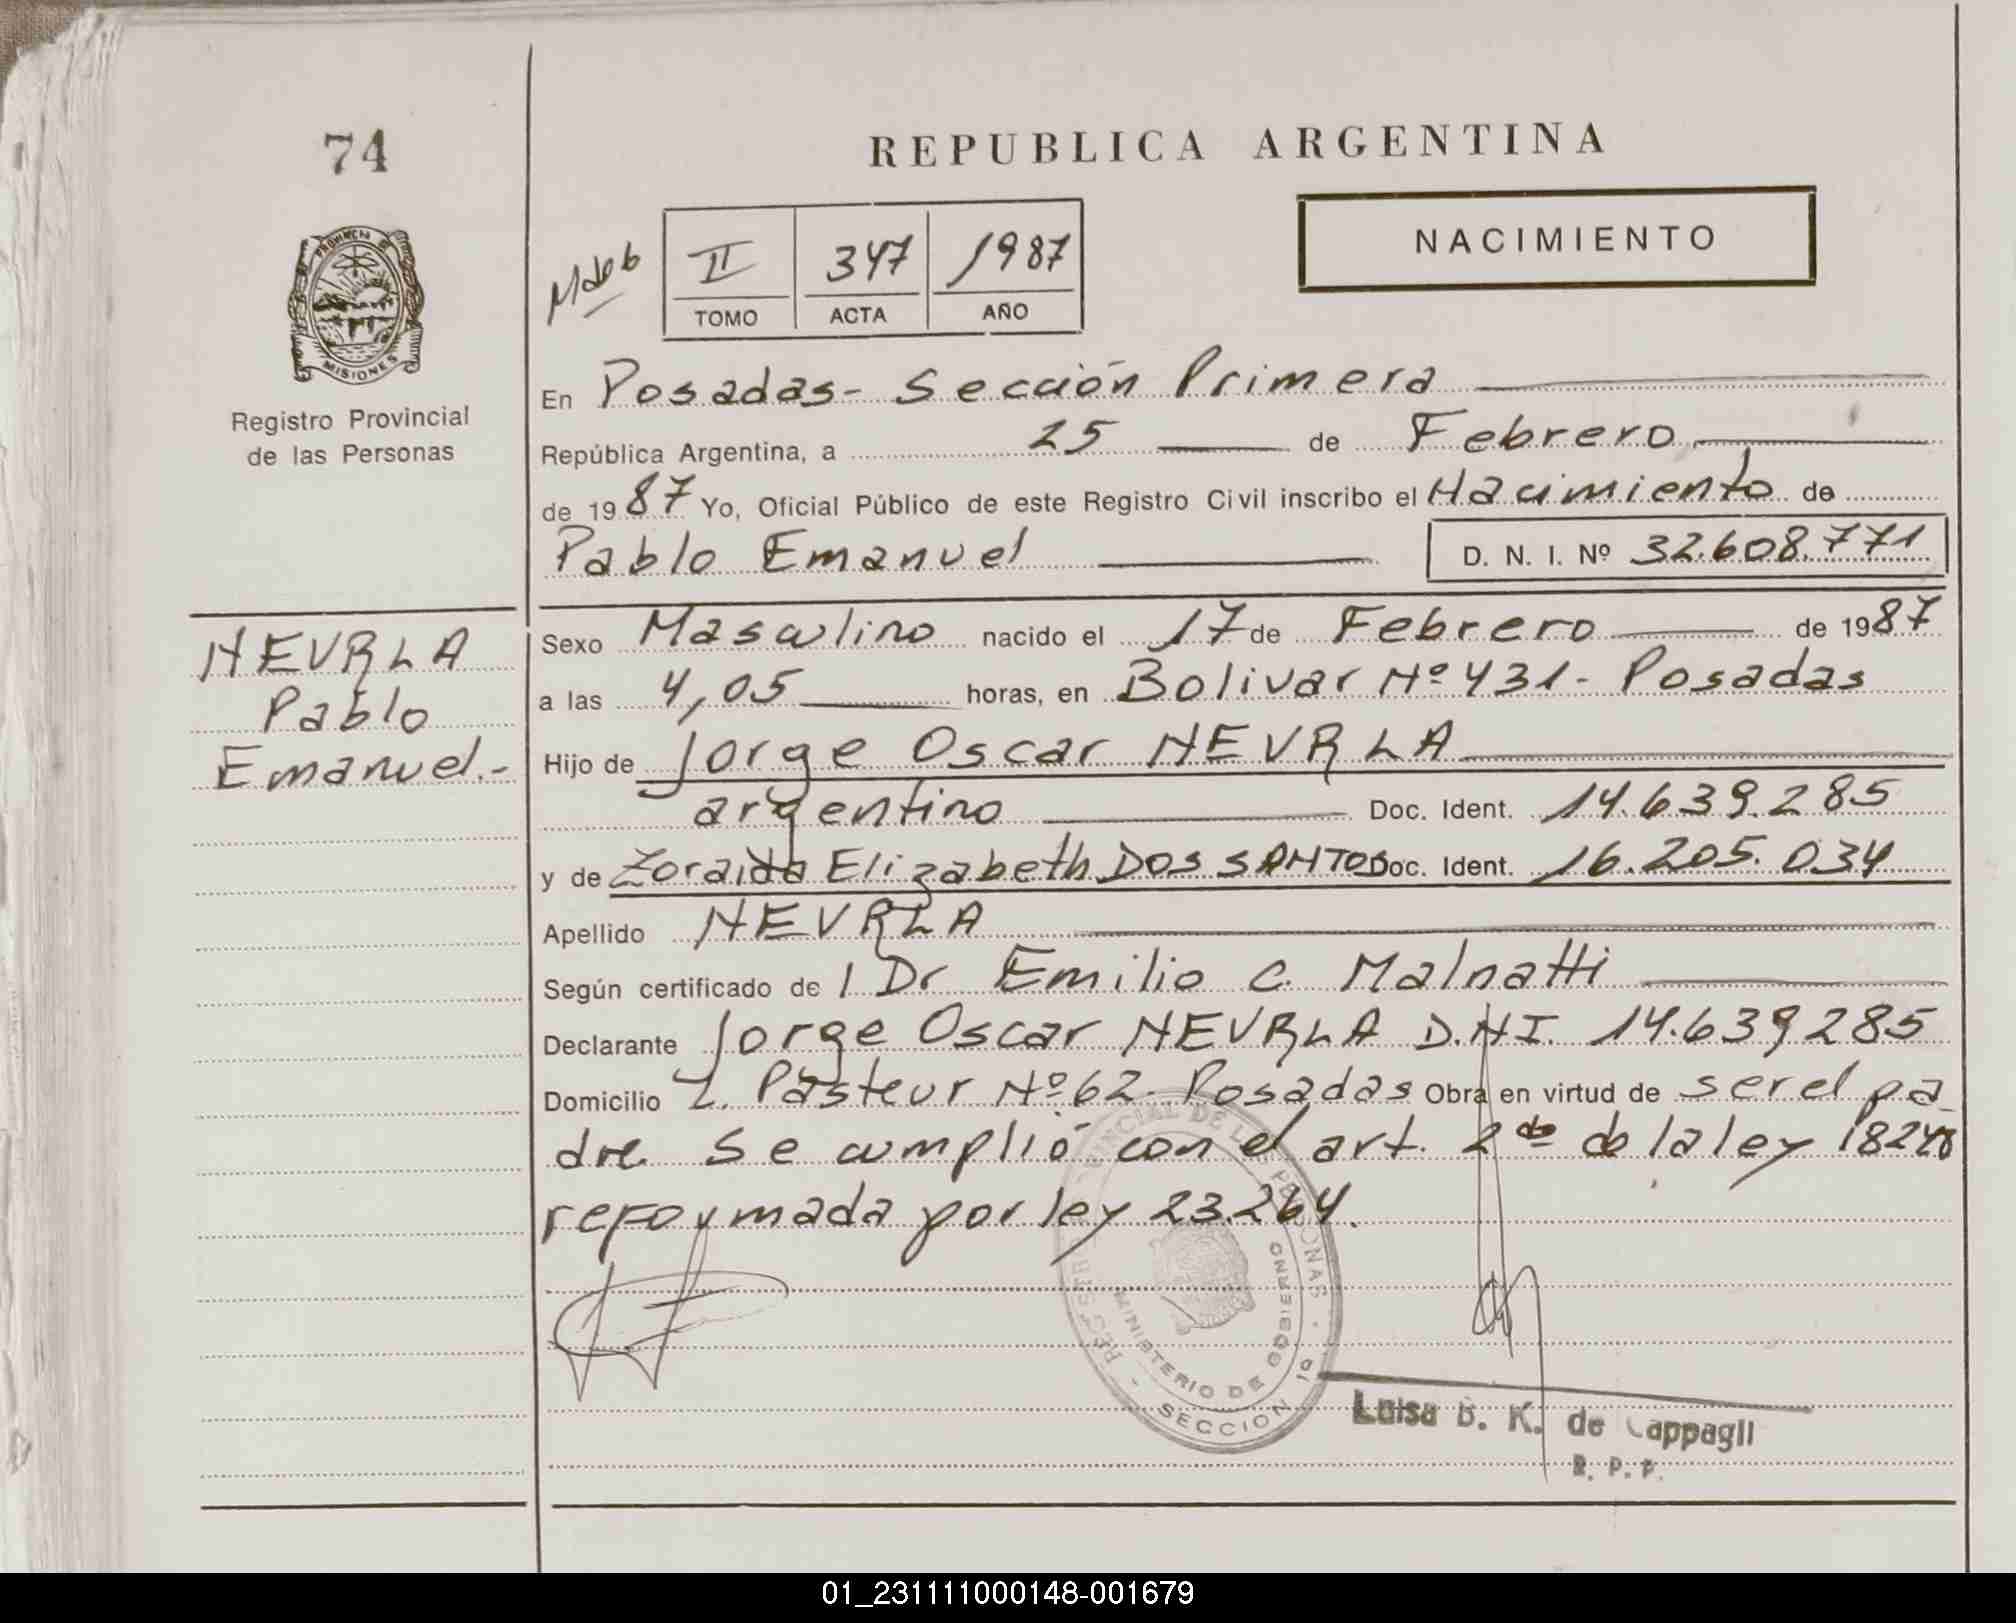 74
REPUBLICA ARGENTINA
NACIMIENTO
II 347 1987
TOMO ACTA AÑO
PROVINCIA DE
MISIONES
Registro Provincial
de las Personas
En Posadas - Sección Primera
República Argentina, a 25 de Febrero
de 1987 Yo, Oficial Público de este Registro Civil inscribo el Nacimiento de
Pablo Emanuel D. N. I. Nº 32.608.771
NEVRLA
Pablo
Emanuel.-
Sexo Masculino nacido el 17 de Febrero de 1987
a las 4,05 horas, en Bolivar Nº 431 - Posadas
Hijo de Jorge Oscar NEVRLA
argentino Doc. Ident. 14.639.285
y de Zoraida Elizabeth DOS SANTOS Doc. Ident. 16.205.034
Apellido NEVRLA
Según certificado de l Dr Emilio C. Malnatti
Declarante Jorge Oscar NEVRLA D.N.I. 14.639285
Domicilio L. Pasteur Nº 62 - Posadas Obra en virtud de ser el pa
dre. Se cumplió con el art. 2do de la ley 18248
reformada por ley 23.264.
MINISTERIO DE GOBIERNO
SECCION 1a
Luisa B. K. de Cappagli
R. P. P.
01_231111000148-001679